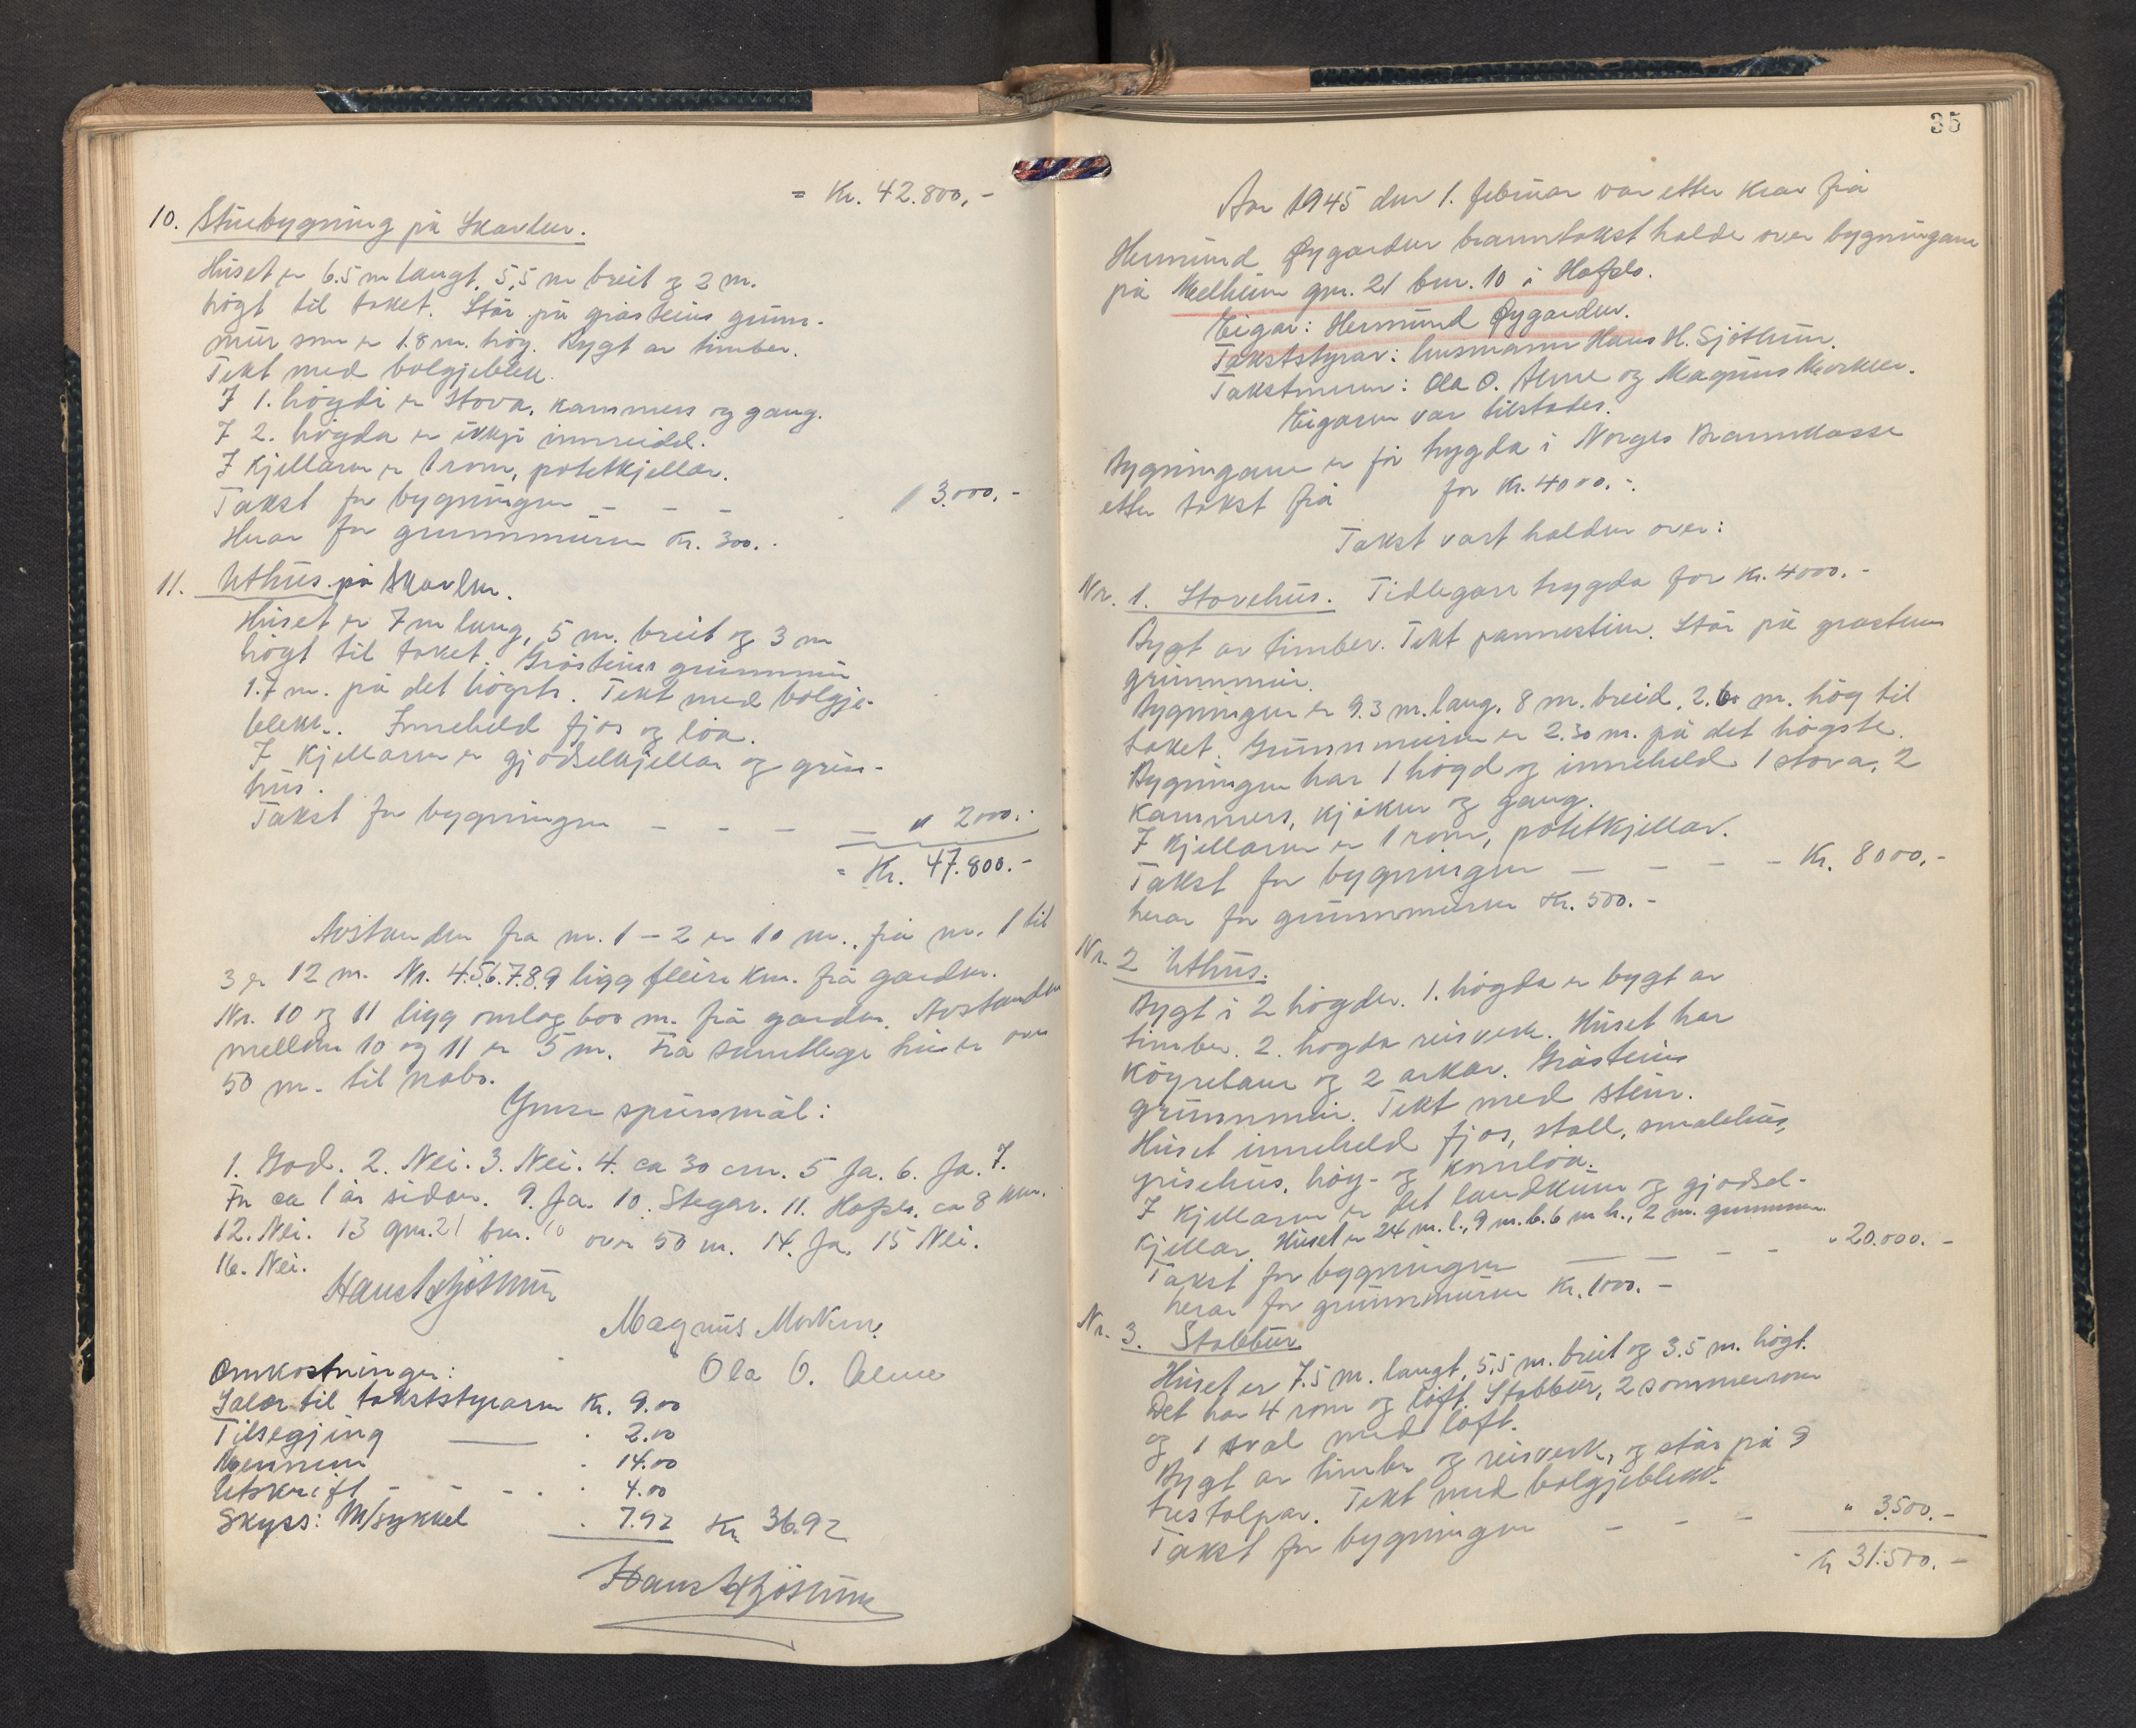 = Kr. 42.800,-
10. Stuebygning på Skavlen.
Huset er 6.5 m langt, 5,5 m breit og 2 m.
högt til taket. Står på gråsteins grunn-
mur som er 1.8 m. hög. Bygt av timber.
Tekt med bolgjeblekk.
I 1. högdi er stova, kammers og gang.
I 2. högda er ikkje innreidd.
I kjellaren er 1 rom, potetkjellar.
Takst for bygningen - - - " 3.000.-
Herav for grunnmuren Kr. 300.-
11. Uthus på Skavlen.
Huset er 7 m lang, 5 m. breit og 3 m
högt til taket. Gråsteins grunnmur
1.7 m. på det högste. Tekt med bolgje-
blekk. Inneheld fjös og löa.
I kjellaren er gjödselkjellar og gris-
hus.
Takst for bygningen - - - - " 2000.-
= Kr. 47.800.-
Avstanden fra nr. 1 - 2 er 10 m., frå nr. 1 til
3 er 12 m. Nr. 4.5.6.7.8.9 ligg fleire km. frå garden.
Nr. 10 og 11 ligg omlag 600 m. frå garden. Avstanden
mellom 10 og 11 er 5 m. Frå samtlege hus er over
50 m. til nabo.
Ymse spursmål:
1. God. 2. Nei. 3. Nei. 4. ca 30 cm. 5 Ja. 6. Ja. 7.
For ca 1 år sidan. 9. Ja. 10. Stegar. 11. Hafslo. ca 8 km.
12. Nei. 13 gnr. 21 bnr. 10 over 50 m. 14. Ja. 15 Nei.
16. Nei.
Hans H Sjötun
Magnus Morken.
Omkostninger: Ola O. Alme
Salær til takststyraren Kr. 9.00
Tilsegjing 2.00
Mennene 14.00
Utskrift - - - 4.00
Skyss: M/sykkel 7.92 Kr 36.92
Hans H Sjötun
35
Aar 1945 den 1. februar var etter krav frå
Hermund Øygarden branntakst halde over bygningane
på Medheim gnr. 21 bnr. 10 i Hafslo.
Eigar: Hermund Øygarden.
Takststyrar: lensmann Hans H. Sjötun.
Takstmenn: Ola O. Alme og Magnus Morken.
Eigaren var tilstades.
Bygningane er för trygda i Norges Brannkasse
etter takst frå for Kr. 4000.-.
Takst vart halden over:
Nr. 1. Stovehus. Tidlegare trygda for Kr. 4000.-
Bygt av timber. Tekt pannestein. Står på gråsteins
grunnmur.
Bygningen er 9.3 m. lang. 8 m. breid, 2.60 m. hög til
taket. Grunnmuren er 2.30 m. på det högste.
Bygningen har 1 högd og inneheld 1 stova, 2
kammers, kjöken og gang.
I kjellaren er 1 rom, potetkjellar.
Takst for bygningen - - - - Kr. 8000.-
herav for grunnmuren Kr. 500.-
Nr. 2 Uthus.
Bygt i 2 högder. 1. högda er bygt av
timber. 2. högda reisverk. Huset har
köyrebane og 2 arkar. Gråsteins
grunnmur. Tekt med stein.
Huset inneheld fjös, stall, smalehus,
grisehus, höy- og kornlöa.
I kjellaren er det landkum og gjödsel-
kjellar. Huset er 24 m. l., 9 m. b. 6 m h., 2 m. grunnmur.
Takst for bygningen - - - - " 20.000.-
herav for grunnmuren Kr. 1000.-
Nr. 3. Stabbur
Huset er 7.5 m. langt, 5,5 m. breit og 3.5 m. högt.
Det har 4 rom og loft. Stabbur, 2 sommerrom
og 1 sval med loft.
Bygt av timber og reisverk, og står på 9
trestolpar. Tekt med bolgjeblekk.
Takst for bygningen - - - " 3.500.-
Kr 31.500.-